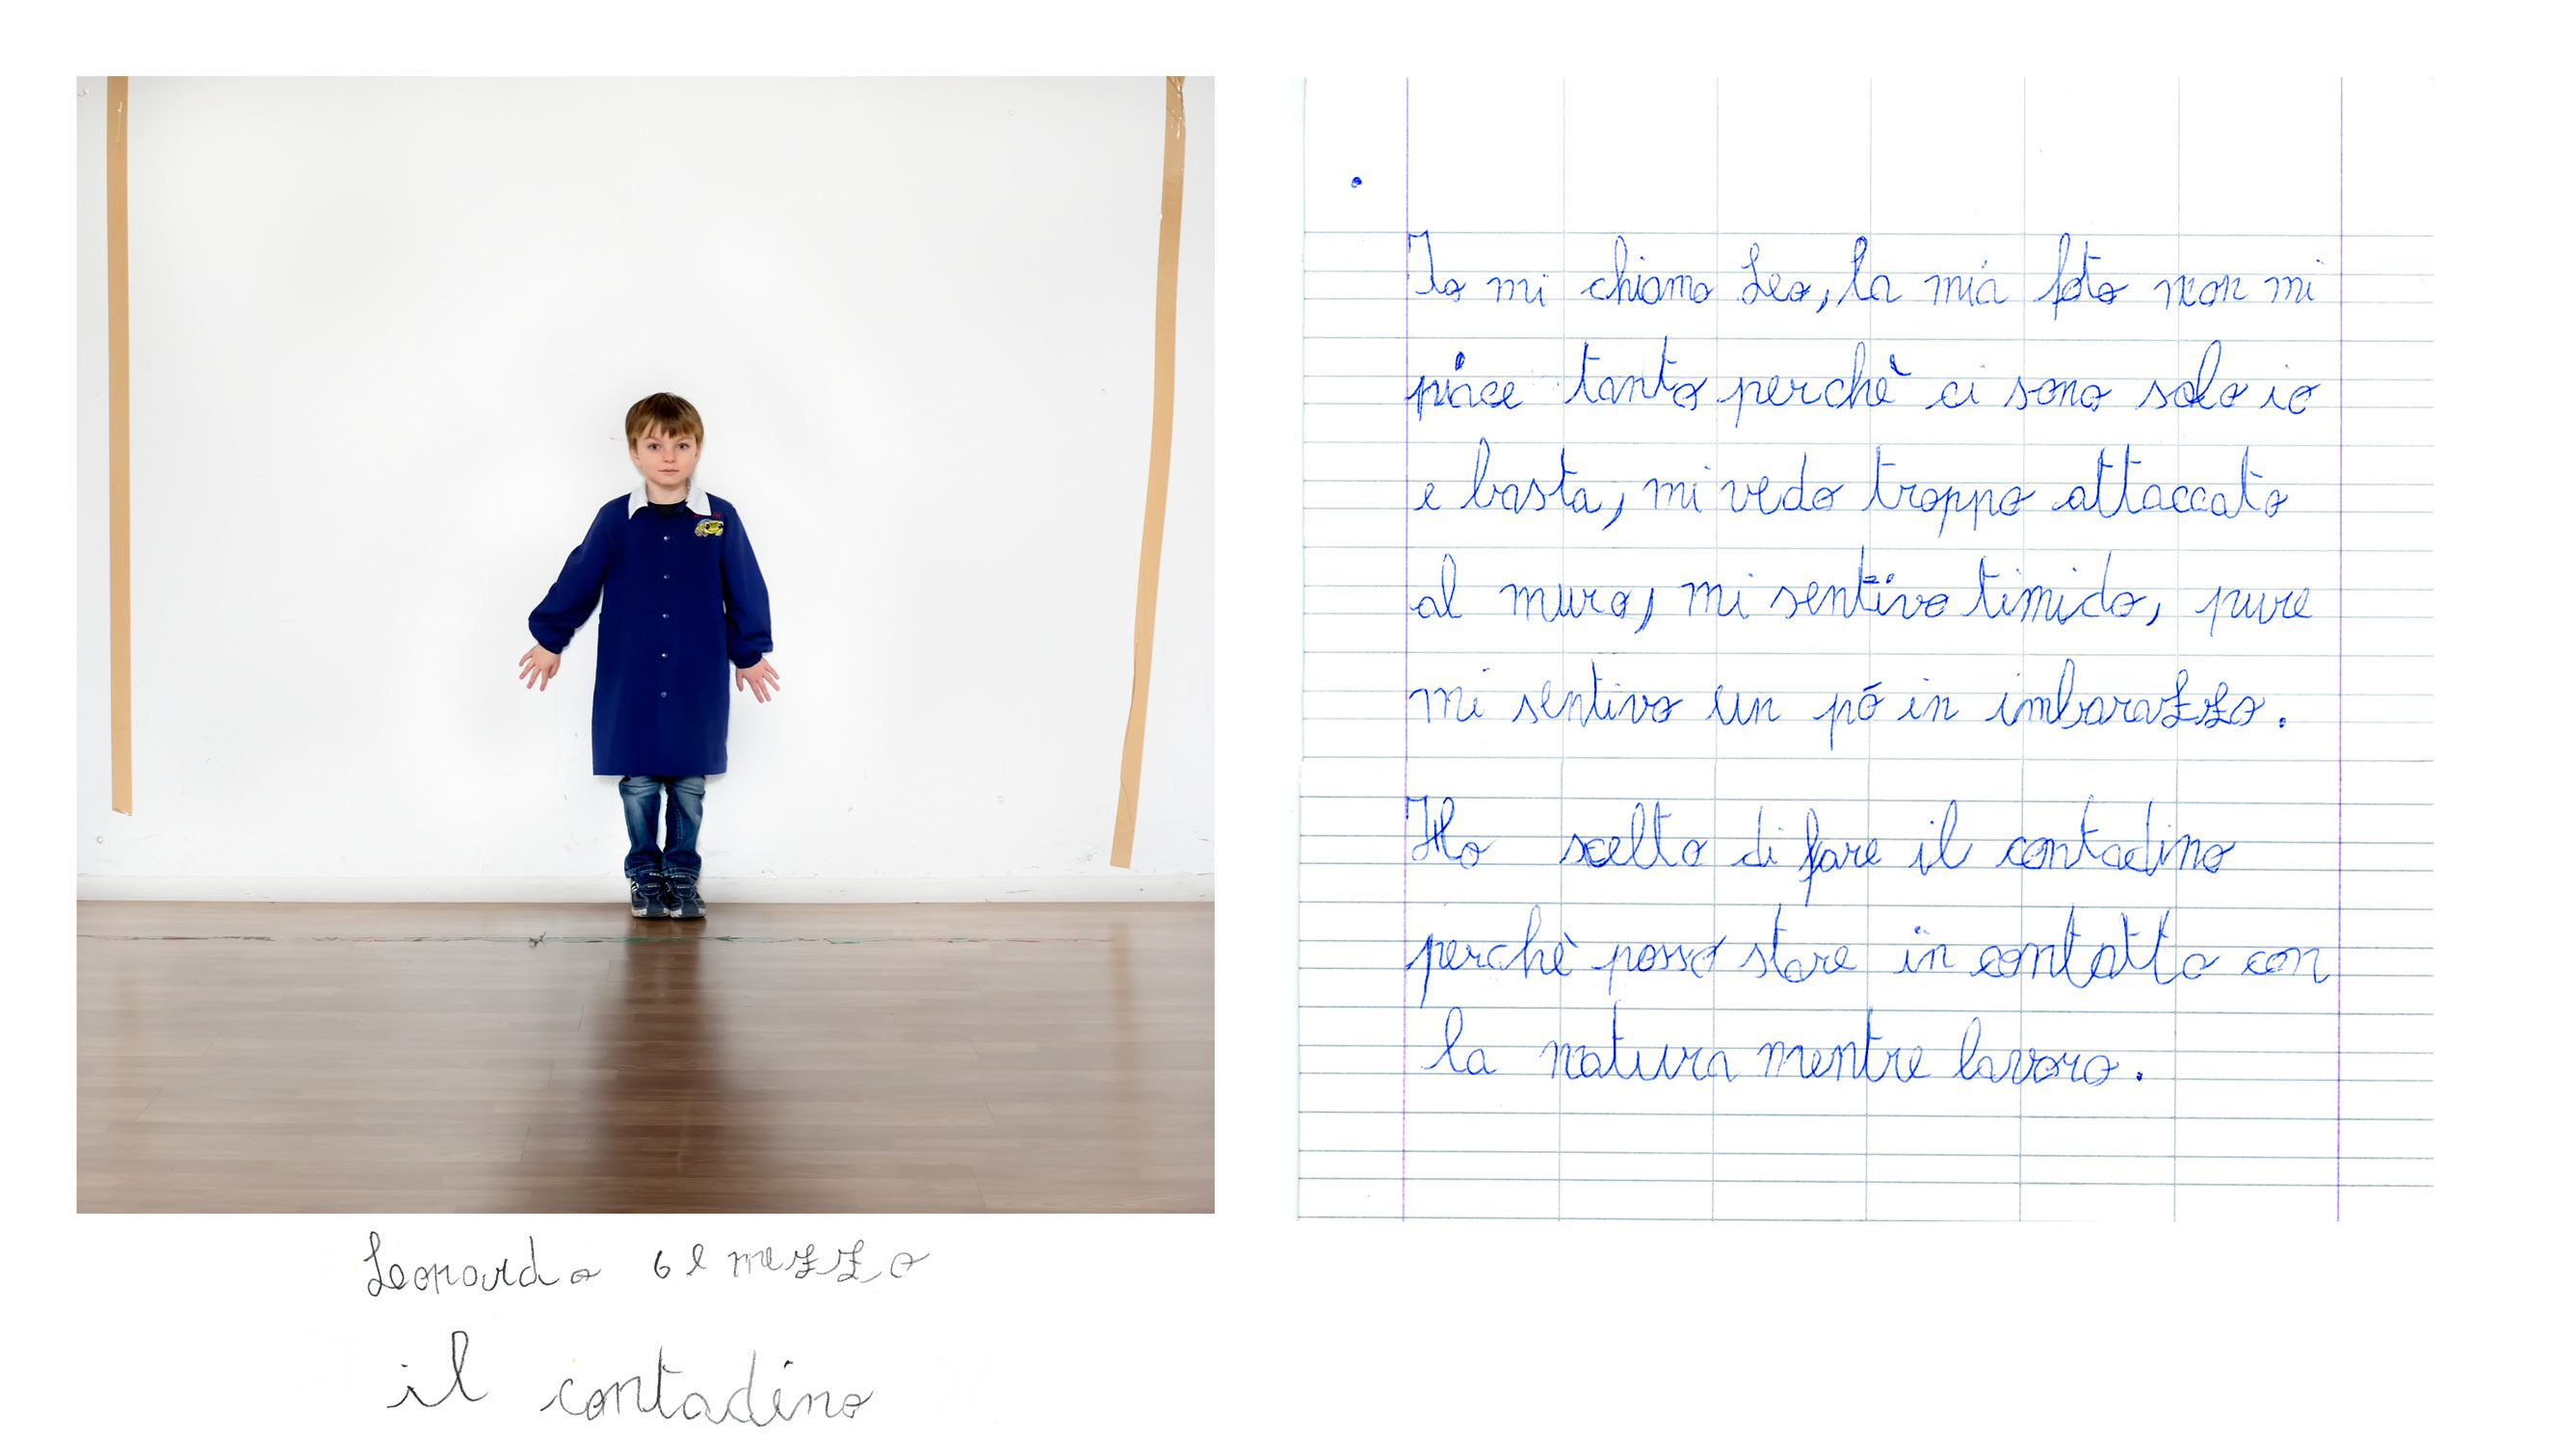 Io mi chiamo Leo, la mia foto non mi
piace tanto perchè ci sono solo io
e basta, mi vedo troppo attaccato
al muro, mi sentivo timido, pure
mi sentivo un pó in imbarazzo.
Ho scelto di fare il contadino
perchè posso stare in contatto con
la natura mentre lavoro.
Leonardo 6 e mezzo
il contadino